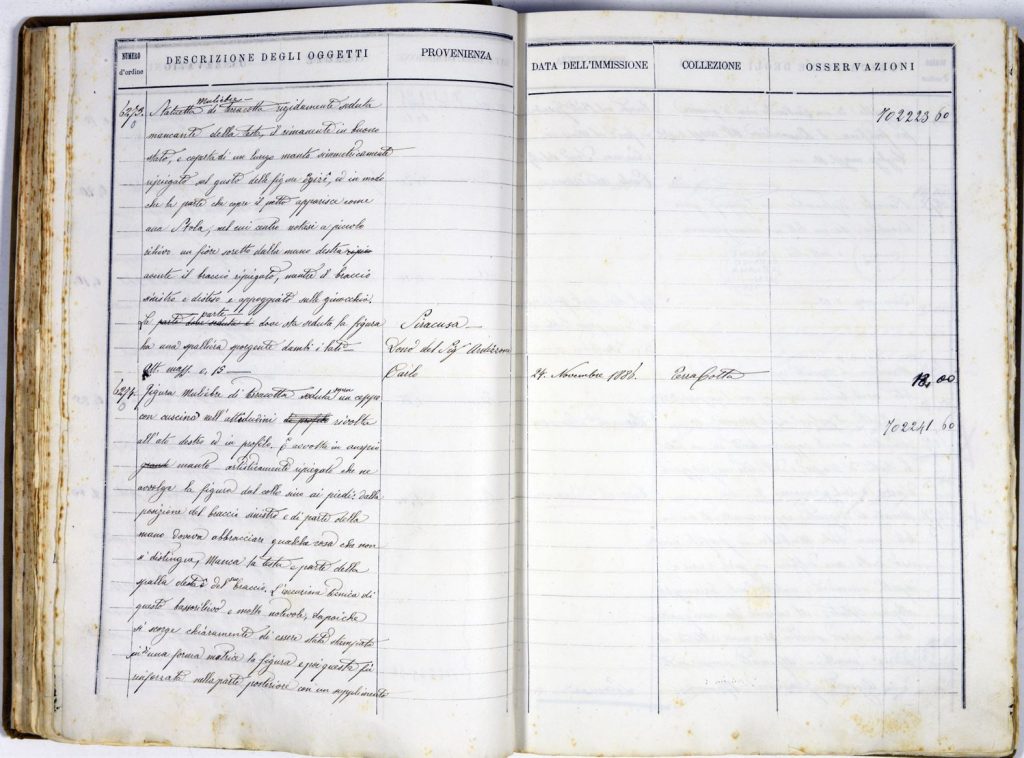 NUMERO d'ordine
DESCRIZIONE DEGLI OGGETTI
PROVENIENZA
DATA DELL'IMMISSIONE
COLLEZIONE
OSSERVAZIONI
6273.
0
muliebre
Statuetta di Terracotta rigidamente seduta
702223 60
mancante della testa, il rimanente in buono
stato, e coperta di un lungo manto simmetricamente
ripiegato nel gusto delle figure Egizie, ed in modo
che la parte che copre il petto apparisce come
una Stola; nel cui centro notasi a piccolo
rilievo un fiore sorretto dalla mano destra
avente il braccio ripiegato, mentre il braccio
sinistro è disteso e appoggiato sulle ginocchia.
parte
La parte dove seduta è dove sta seduta la figura
Siracusa
ha una spalliera sporgente d'ambi i lati
Dono del Sigr
Alt. mass. 0,15.
Carlo
24. Novembre 1886.
Terra Cotta
18, 00
6274.
0
Figura Muliebre di Terracotta seduta sopra un ceppo
con cuscino nell'attitudini di profilo rivolta
702241 60
all'ato destro ed in profilo. È avvolta in ampio
grande manto artisticamente ripiegato che ne
avvolge la figura dal collo sino ai piedi: dalla
posizione del braccio sinistro e di parte della
mano doveva abbracciare qualche cosa che non
si distingue, Manca la testa e parte della
spalla destra e del braccio. L'esecuzione tecnica di
questo bassorilievo è molto notevole, dapoichè
si scorge chiaramente di essere stata stampata
in una forma matrice la figura e poi questa fu
rinforzata nella parte posteriore con un supplemento